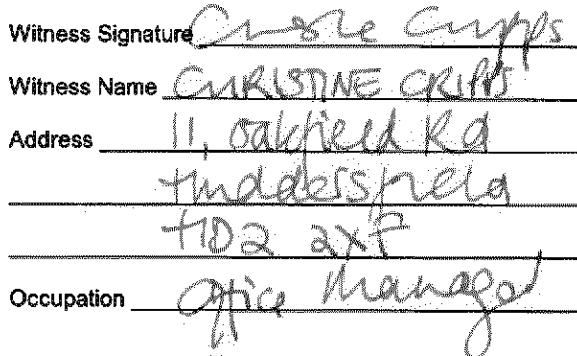 Witness Signature Christine Cripps
Witness Name CHRISTINE CRIPPS
Address 11, Oakfield Rd
Huddersfield
HD2 2XF
Occupation Office Manager